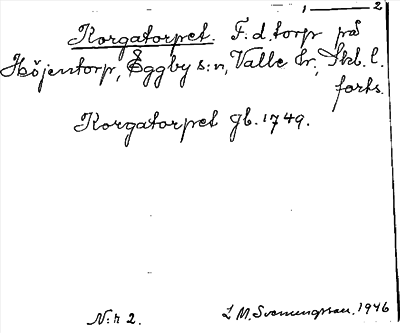 1 — 2
Korgatorpet. F.d. torp på
Höjentorp, Eggby s:n, Valle hr, Skb. l.
forts.
Korgatorpet gb. 1749.
N:r 2.
L M. Svenungsson. 1946